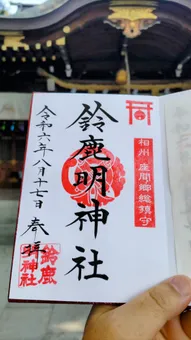 相州 座間郷総鎮守
鈴鹿明神社
奉拝
令和六年八月十七日
鈴鹿
明神社